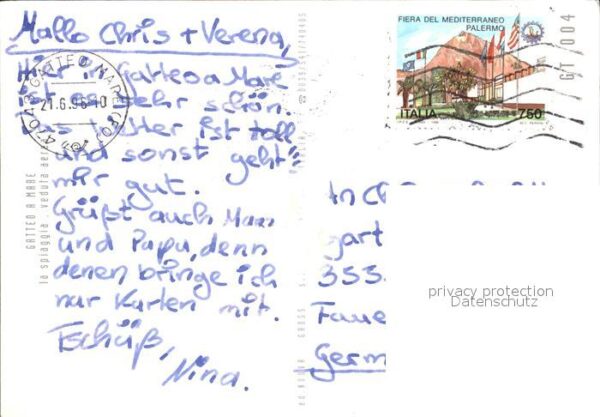 Hallo Chris + Verena,
Hier in Gatteo a Mare
ist es sehr schön.
Das Wetter ist toll
und sonst geht's
mir gut.
Grüßt auch Mam
und Papa, denn
denen bringe ich
nur Karten mit.
Tschüß,
Nina.
47043 GATTEO MARE (FO)
21.6.96-10
GATTEO A MARE
la spiaggia, veduta
FIERA DEL MEDITERRANEO
PALERMO
ITALIA 750
GT/004
gart
353
Faue
Germ
privacy protection
Datenschutz